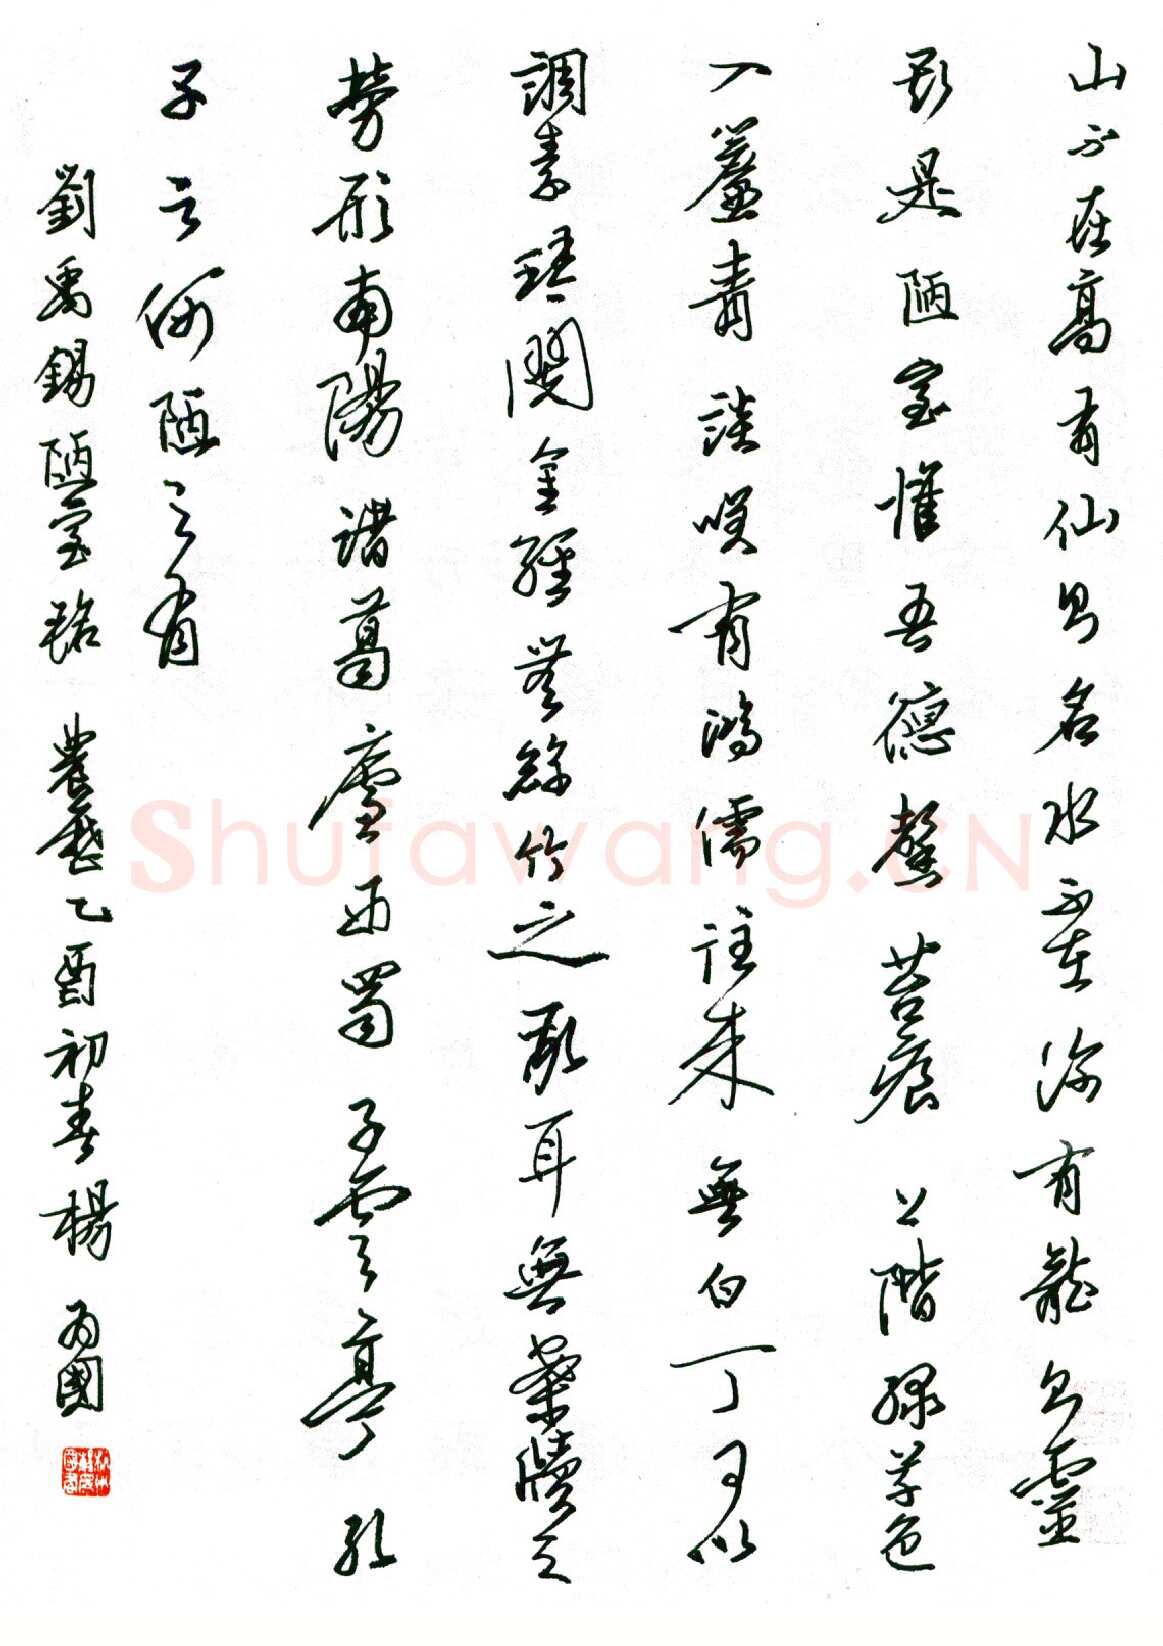 山不在高有仙則名水不在深有龍則靈
斯是陋室惟吾德馨苔痕上階綠草色
入簾青談咲有鴻儒往來無白丁可以
調素琴閱金經無絲竹之亂耳無案牘之
勞形南陽諸葛廬西蜀子雲亭孔
子云何陋之有
劉禹錫陋室銘 農曆乙酉初春楊為國
Shufawang.CN